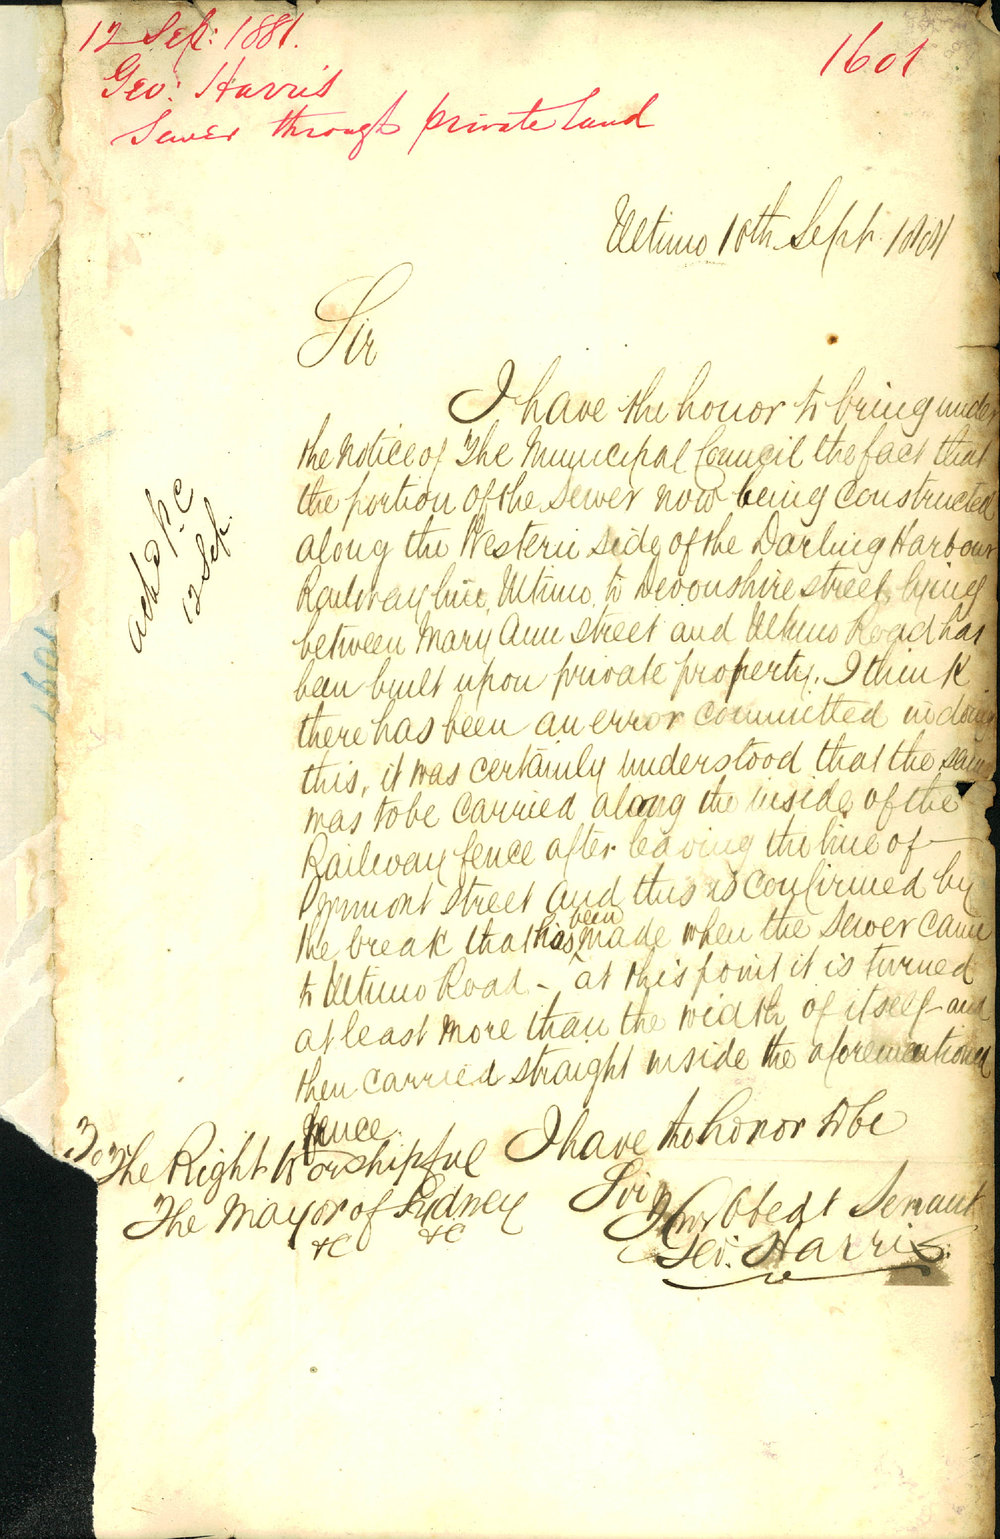 12 Sep: 1881.
1601
Geo: Harris
Sewer through private land
Ultimo 10th Sept. 1881
Sir
I have the honor to bring under
the notice of The Municipal Council the fact that
the portion of the Sewer now being constructed
along the Western side of the Darling Harbour
Railway line, Ultimo, to Devonshire street, lying
between Mary Ann Street and Ultimo Road has
been built upon private property. I think
there has been an error committed in doing
this, it was certainly understood that the same
was to be carried along the inside of the
Railway fence after leaving the line of
Pyrmont Street and this is confirmed by
the break that has been made when the sewer came
to Ultimo Road - at this point it is turned
at least more than the width of itself and
then carried straight inside the aforementioned
fence.
I have the honor to be
Sir
Your Obedt Servant
Geo: Harris
To
The Right Worshipful
The Mayor of Sydney
&c &c
ackd p.c
12 Sep.
1601